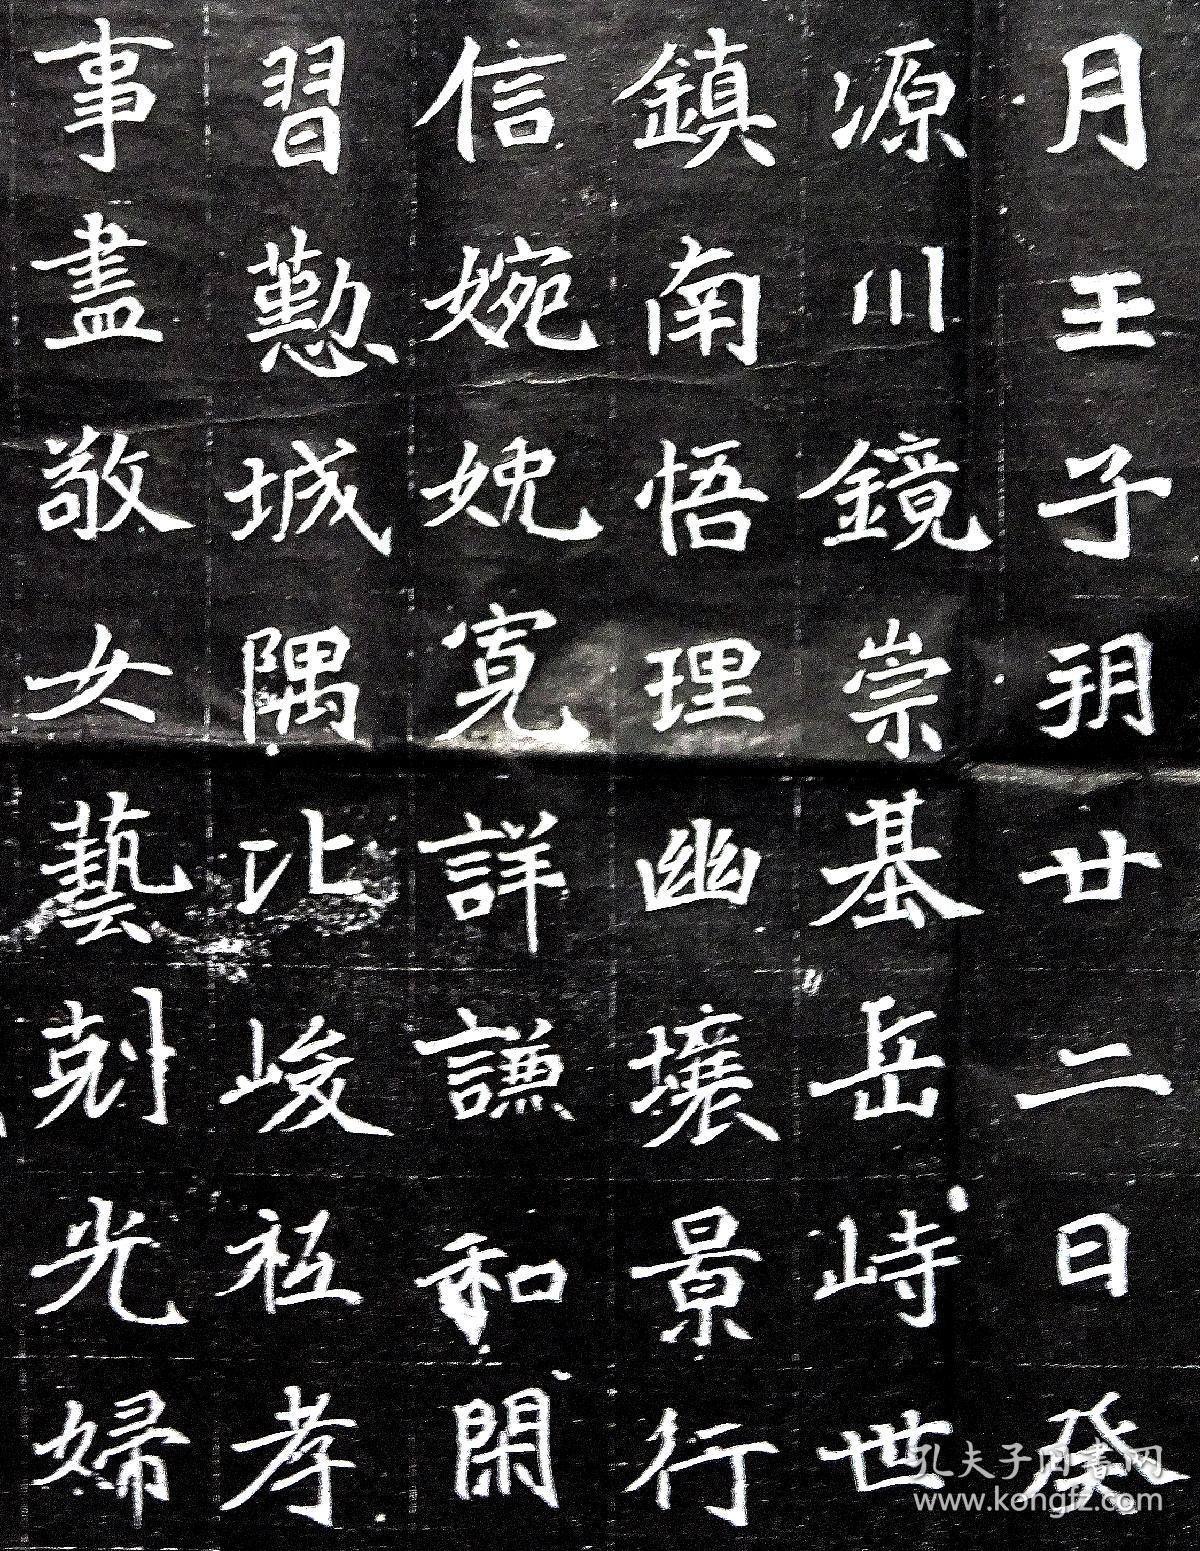 月王子朔廿二日癸
源川鏡崇基岳峙世
鎮南悟理幽壤景行
信婉娩寬詳謙和閑
習懃城隅比峻祗孝
事盡敬女藝剋光婦
孔夫子旧書网
www.kongfz.com